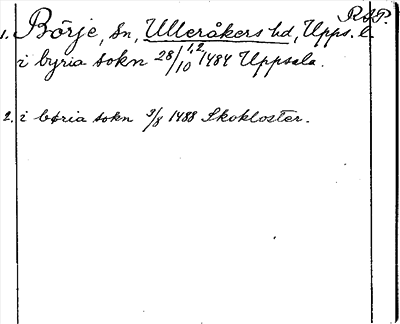 RAP.
1. Börje, sn, Ulleråkers hd, Upps. l.
i byria sokn 28/10 1,2 1484 Uppsala.
2. i børia sokn 9/8 1488 Skokloster.